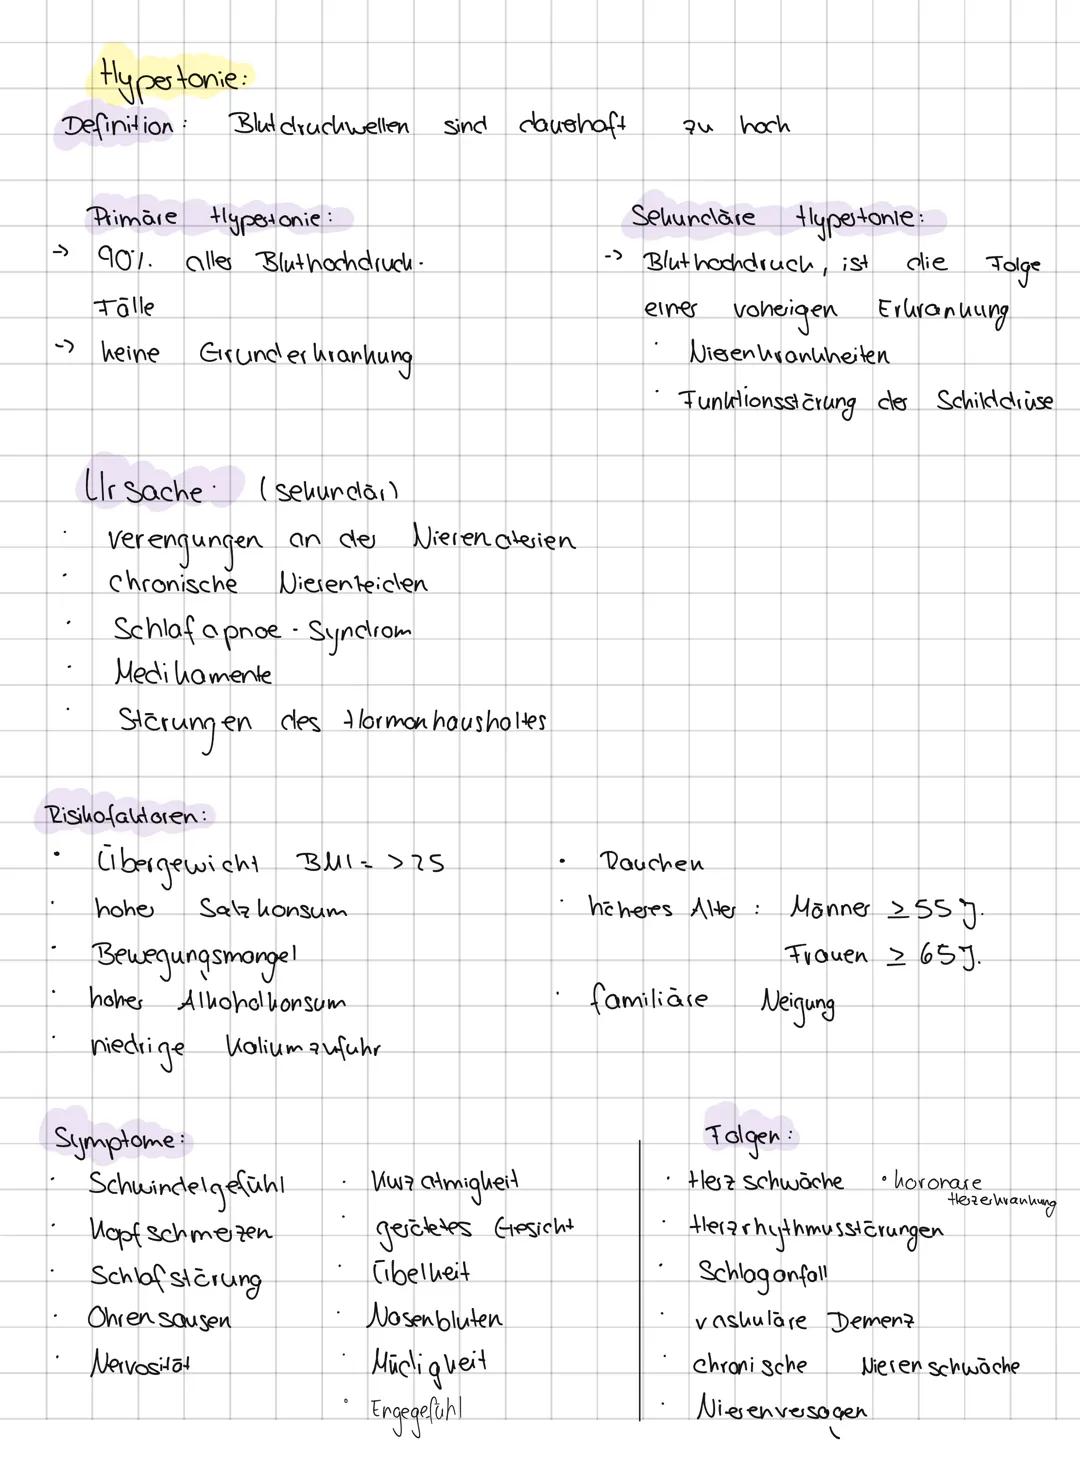 Hypertonie:
Definition: Blutdruckwellen sind dauerhaft zu hoch
Primäre Hypertonie:
-> 90% aller Bluthochdruck-
Fälle
-> keine Grunderkrankung
Sekundäre Hypertonie:
-> Bluthochdruck, ist die Folge
einer voherigen Erkrankung
· Nierenkrankheiten
· Funktionsstörung der Schilddrüse
Ursache: (sekundär)
· Verengungen an der Nierenaterien
· chronische Nierenleiden
· Schlafapnoe-Syndrom
· Medikamente
· Störungen des Hormonhaushaltes
Risikofaktoren:
· Übergewicht BMI = >25
· hoher Salzkonsum
· Bewegungsmangel
· hoher Alkoholkonsum
· niedrige Kaliumzufuhr
· Rauchen
· höheres Alter: Männer ≥ 55 J.
Frauen ≥ 65 J.
· familiäre Neigung
Symptome:
· Schwindelgefühl
· Kopfschmerzen
· Schlafstörung
· Ohrensausen
· Nervosität
· Kurzatmigkeit
· gerötetes Gesicht
· Übelkeit
· Nasenbluten
· Müdigkeit
· Engegefühl
Folgen:
· Herzschwäche · koronare
Herzerkrankung
· Herzrhythmusstörungen
· Schlaganfall
· vaskuläre Demenz
· chronische Nierenschwäche
· Nierenversagen